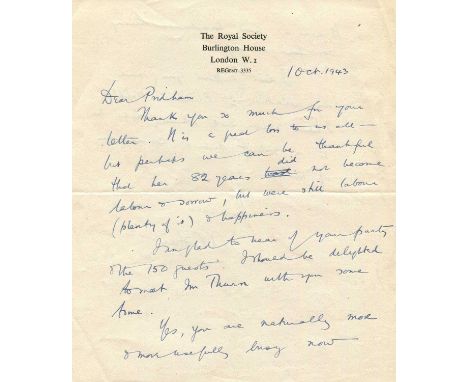 The Royal Society
Burlington House
London W.1
REGent 3335
1 Oct. 1943
Dear Pridham
Thank you so much for your
letter. It is a great loss to us all –
but perhaps we can be thankful
that her 82 years did not become
labour & sorrow, but were still labour
(plenty of it) & happiness.
I am glad to hear of your party
& the 150 guests. I should be delighted
to meet with you some
time.
Yes, you are naturally more
& more usefully busy now